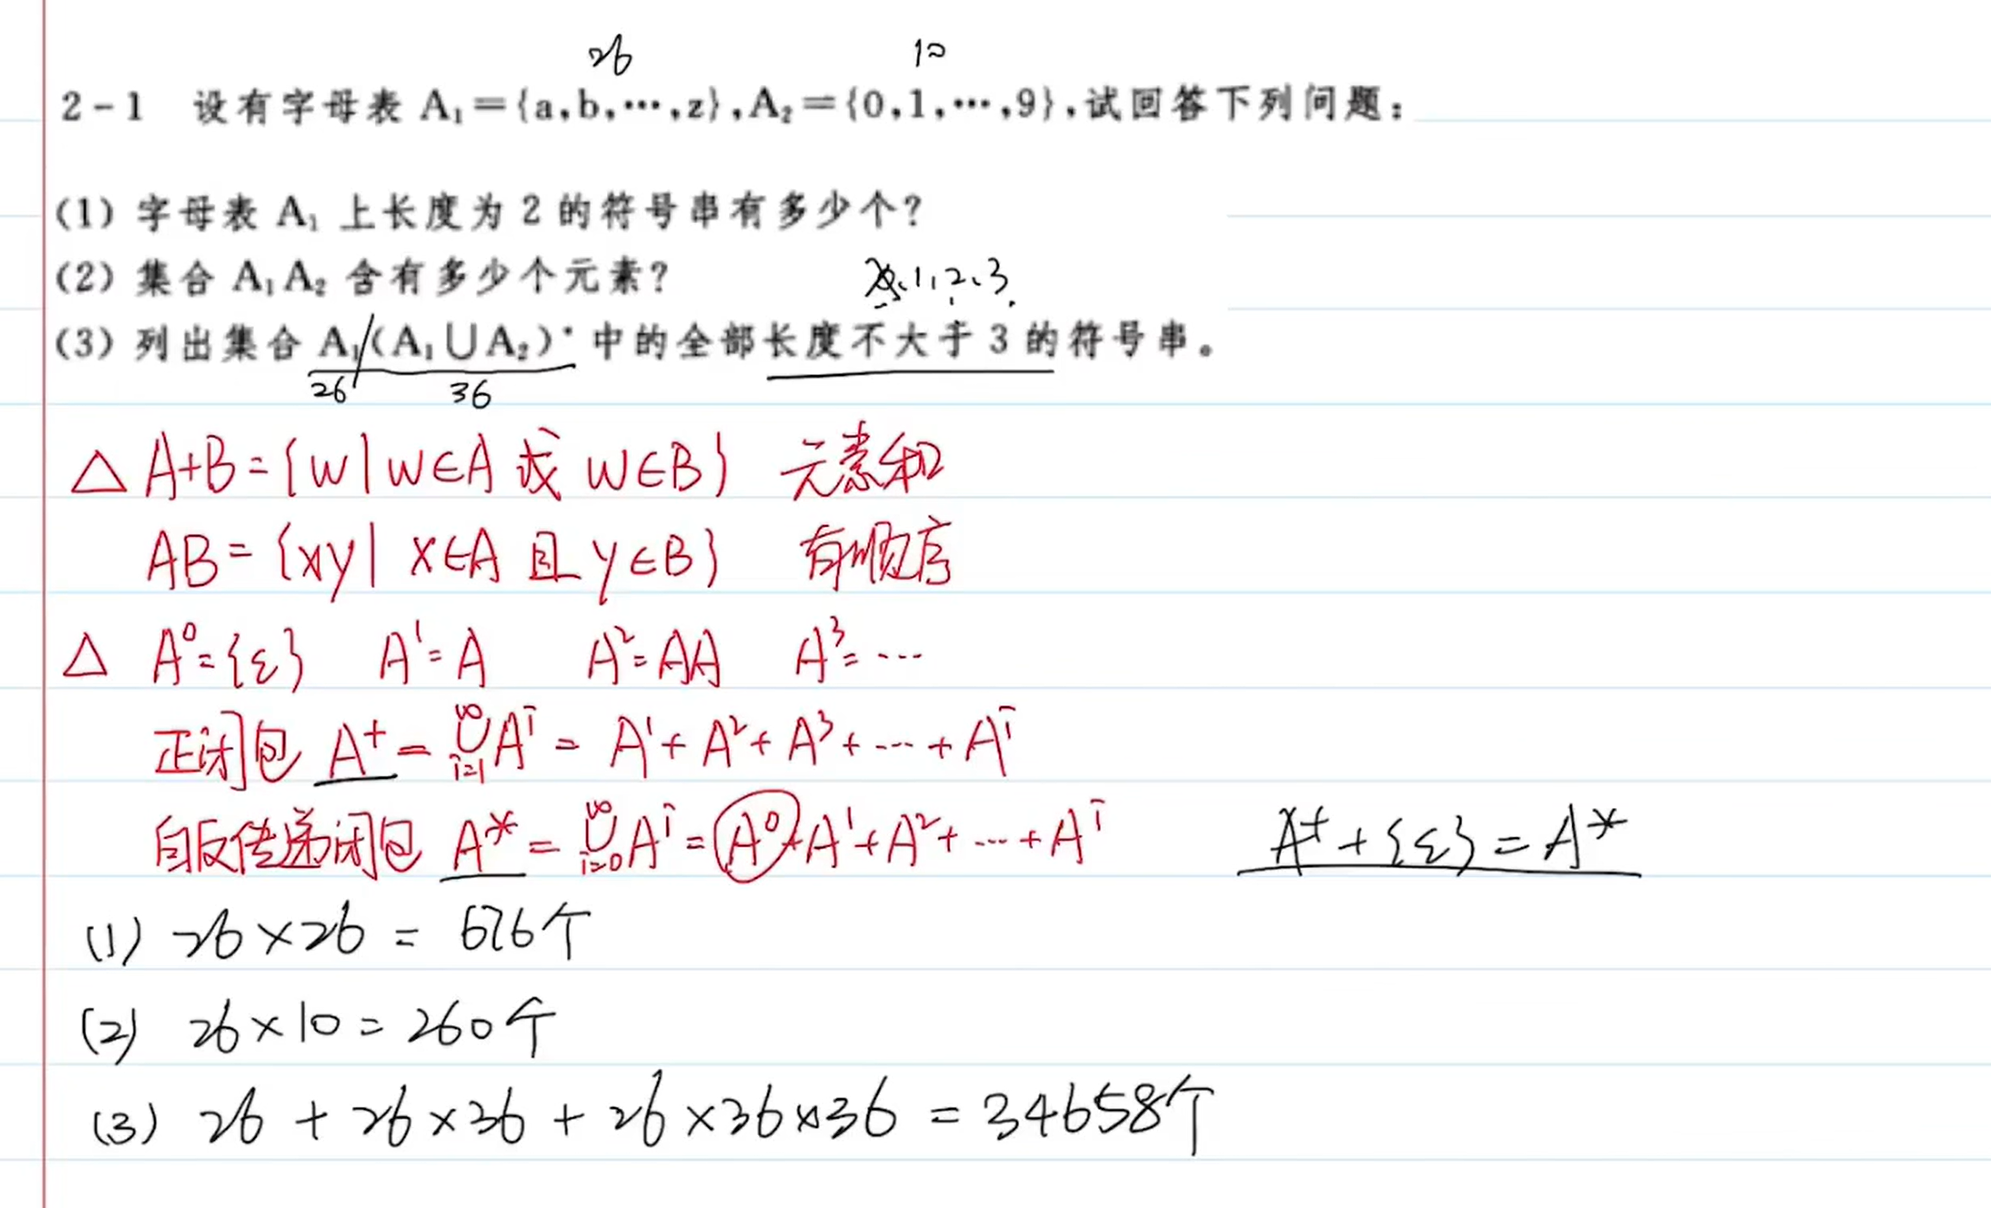 26 10
2-1 设有字母表 A₁={a,b,…,z},A₂={0,1,…,9},试回答下列问题:
(1) 字母表 A₁ 上长度为 2 的符号串有多少个?
(2) 集合 A₁A₂ 含有多少个元素?
1、2、3
(3) 列出集合 A₁(A₁∪A₂)* 中的全部长度不大于 3 的符号串。
26 36
△ A+B={w|w∈A 或 w∈B} 元素和
AB={xy|x∈A 且 y∈B} 有顺序
△ A⁰={ε} A¹=A A²=AA A³=…
正闭包 A⁺=⋃_{i=1}^{∞}Aⁱ=A¹+A²+A³+…+Aⁱ
自反传递闭包 A*=⋃_{i=0}^{∞}Aⁱ=A⁰+A¹+A²+…+Aⁱ A⁺+{ε}=A*
(1) 26×26=676个
(2) 26×10=260个
(3) 26+26×36+26×36×36=34658个